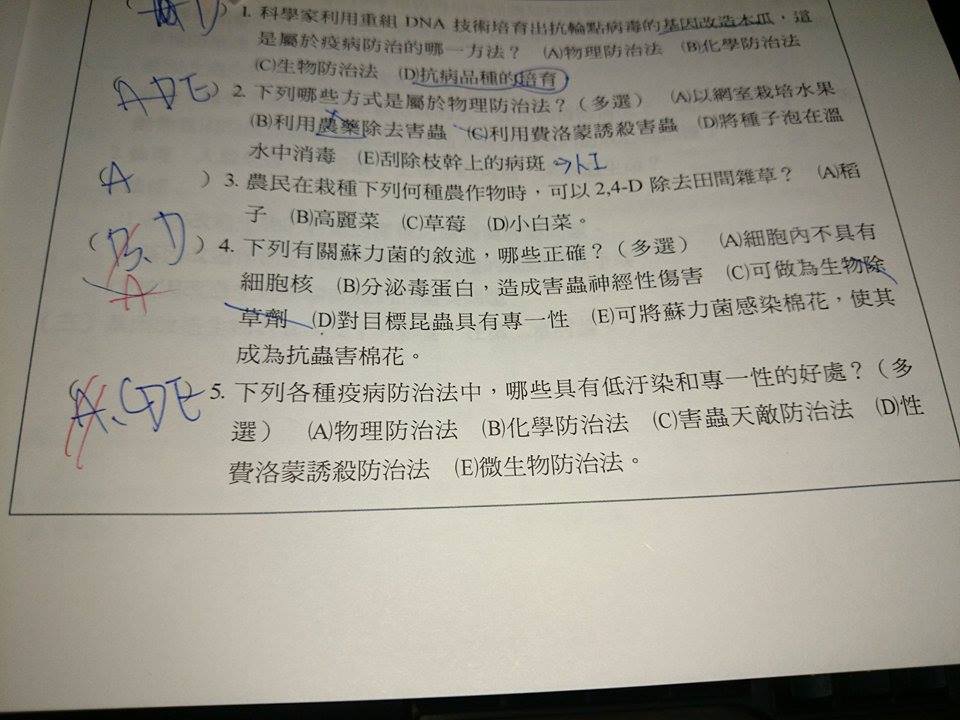 D) 1. 科學家利用重組 DNA 技術培育出抗輪點病毒的基因改造木瓜，這
是屬於疫病防治的哪一方法？ (A)物理防治法 (B)化學防治法
(C)生物防治法 (D)抗病品種的培育
ADE) 2. 下列哪些方式是屬於物理防治法？（多選） (A)以網室栽培水果
(B)利用農藥除去害蟲 (C)利用費洛蒙誘殺害蟲 (D)將種子泡在溫
水中消毒 (E)刮除枝幹上的病斑 →人工
(A ) 3. 農民在栽種下列何種農作物時，可以 2,4-D 除去田間雜草？ (A)稻
子 (B)高麗菜 (C)草莓 (D)小白菜。
(B.D) 4. 下列有關蘇力菌的敘述，哪些正確？（多選） (A)細胞內不具有
A
細胞核 (B)分泌毒蛋白，造成害蟲神經性傷害 (C)可做為生物除
草劑 (D)對目標昆蟲具有專一性 (E)可將蘇力菌感染棉花，使其
成為抗蟲害棉花。
(A.CDE) 5. 下列各種疫病防治法中，哪些具有低汙染和專一性的好處？（多
選） (A)物理防治法 (B)化學防治法 (C)害蟲天敵防治法 (D)性
費洛蒙誘殺防治法 (E)微生物防治法。